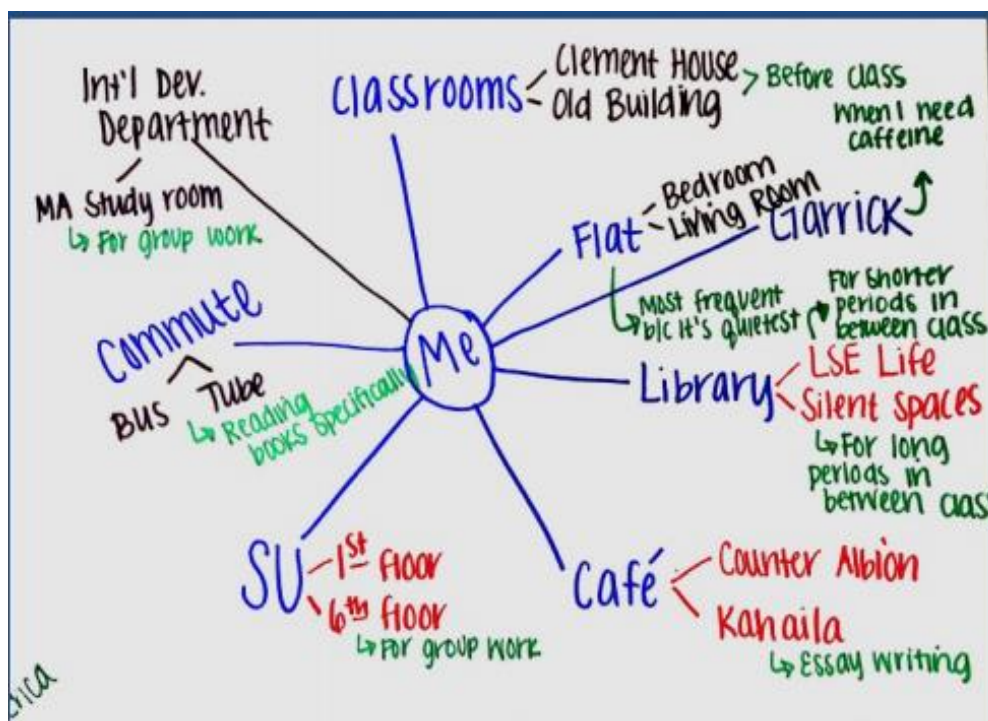 Int'l Dev.
Department
MA Study room
↳ For group work
Classrooms
Clement House
Old Building
> Before class
When I need
caffeine
Flat
Bedroom
Living Room
Most frequent
b/c it's quietest
Garrick
Me
Commute
BUS
Tube
↳ Reading
books specifically
Library
For shorter
periods in
between class
LSE Life
Silent spaces
↳ For long
periods in
between class
SU
1st floor
6th floor
↳ For group work
Café
Counter Albion
Kahaila
↳ Essay writing